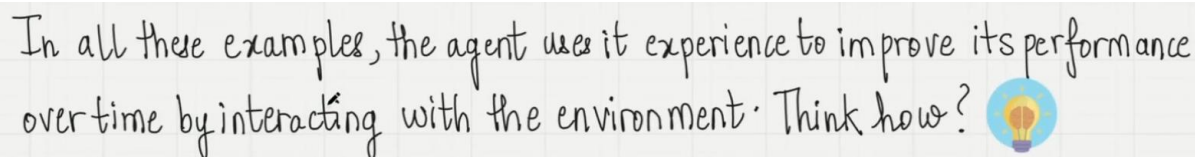 In all these examples, the agent uses it experience to improve its performance
over time by interacting with the environment. Think how?